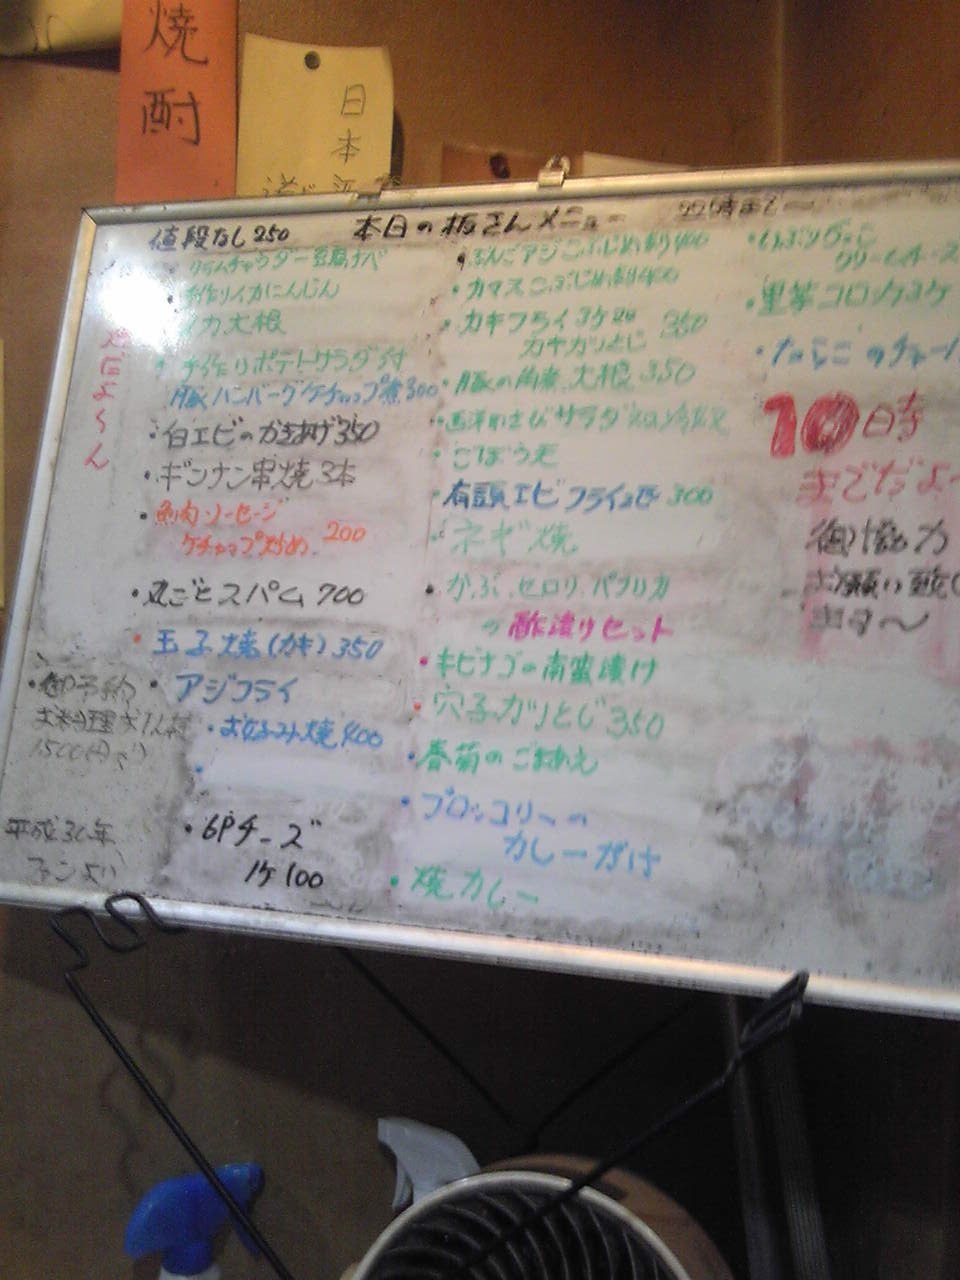 焼酎
日本
値段なし250
本日の板さんメニュー
クラムチャウダー豆腐ナベ
手作りイカにんじん
イカ大根
手作りポテトサラダ付
豚ハンバーグケチャップ煮300
・白エビのかきあげ350
・ギンナン串焼3本
・魚肉ソーセージ
ケチャップ炒め 200
・丸ごとスパム700
・玉子焼(カキ)350
・アジフライ
・お好み焼400
・6Pチーズ
1ケ100
・御予約
平成30年
・ぶんごアジこぶじめ刺400
・カマスこぶじめ刺400
・カキフライ3ケ 350
カキカツとじ
・豚の角煮、大根350
・西洋わさびサラダ
・ごぼう天
・有頭エビフライ2匹 300
・ネギ焼
・かぶ、セロリ、パプリカ
の酢漬けセット
・キビナゴの南蛮漬け
・穴子カツとじ350
・春菊のごまあえ
・ブロッコリーの
カレーがけ
・焼カレー
・いぶりがっこ
クリームチーズ
・里芋コロッケ2ケ
・たらこのチャー
10時
までだよ～
御協力
お願い致し
ます～